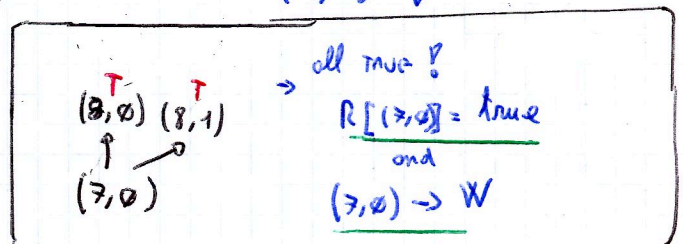 T T
(8,ø) (8,1)
(7,ø)
→ all true!
R[(7,ø)] = true
and
(7,ø) → W